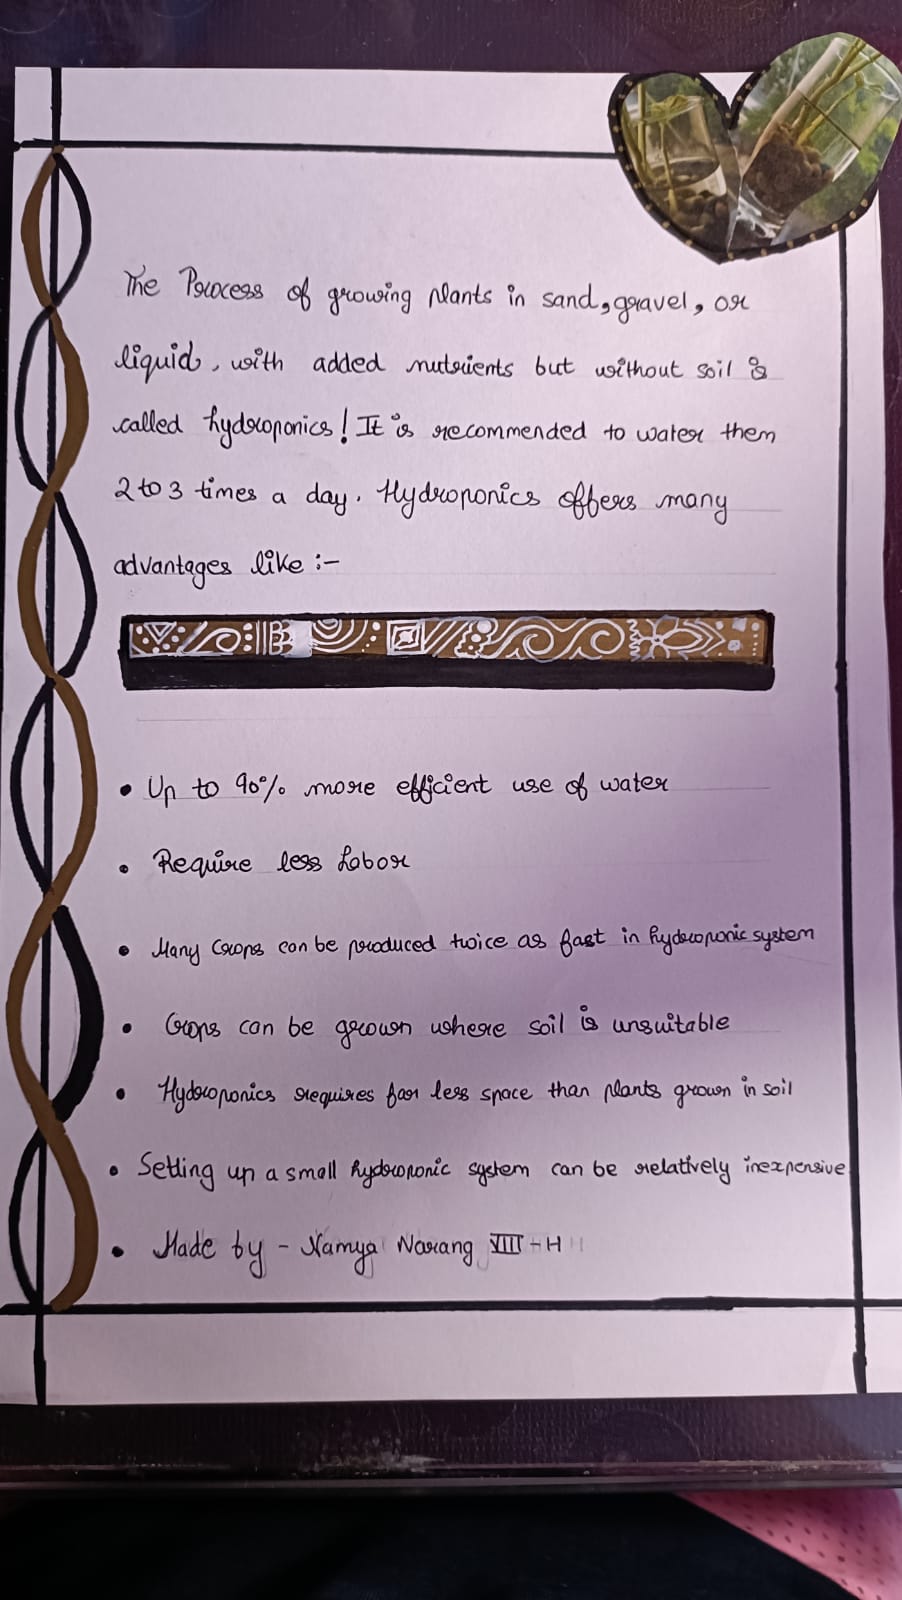 The Process of growing plants in sand, gravel, or
liquid, with added nutrients but without soil is
called hydroponics! It is recommended to water them
2 to 3 times a day. Hydroponics offers many
advantages like :-
• Up to 90% more efficient use of water
• Require less Labor
• Many Crops can be produced twice as fast in hydroponic system
• Crops can be grown where soil is unsuitable
• Hydroponics requires far less space than plants grown in soil
• Setting up a small hydroponic system can be relatively inexpensive
• Made by - Namya Narang VIII - H